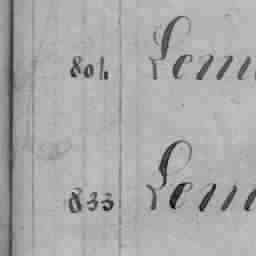 804 Lem
833 Lem